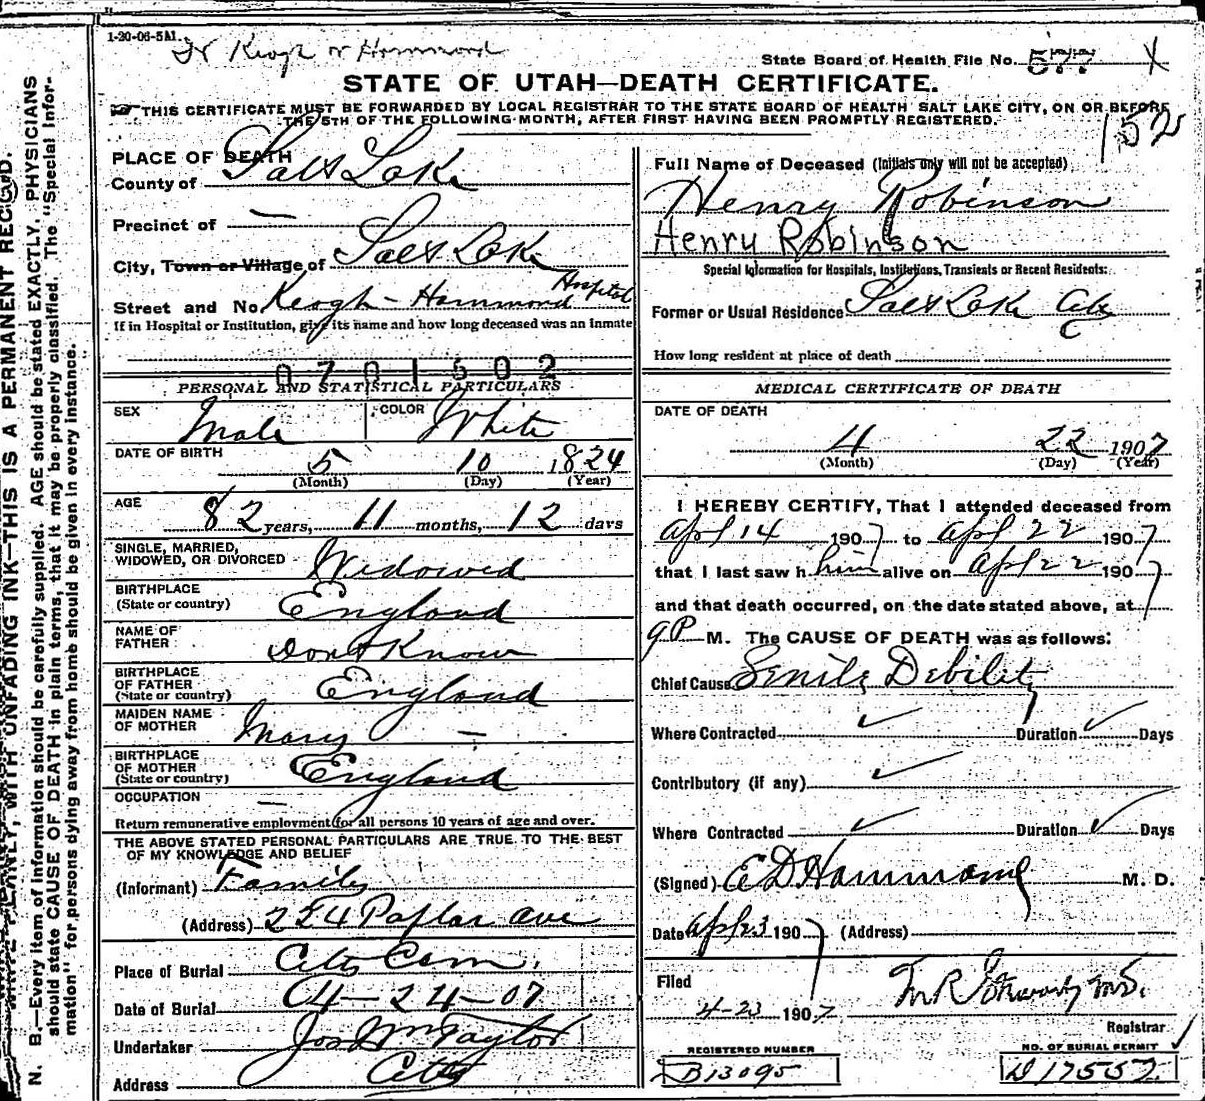 1-20-06-5M.
Keogh or Hammond
State Board of Health File No. 577 X
STATE OF UTAH—DEATH CERTIFICATE.
THIS CERTIFICATE MUST BE FORWARDED BY LOCAL REGISTRAR TO THE STATE BOARD OF HEALTH SALT LAKE CITY, ON OR BEFORE
THE 5TH OF THE FOLLOWING MONTH, AFTER FIRST HAVING BEEN PROMPTLY REGISTERED.
PLACE OF DEATH
County of Salt Lake
Precinct of —
City, Town or Village of Salt Lake
Street and No. Keogh-Hammond Hospital
If in Hospital or Institution, give its name and how long deceased was an inmate
0701502
PERSONAL AND STATISTICAL PARTICULARS
SEX Male COLOR White
DATE OF BIRTH 5 10 1824
(Month) (Day) (Year)
AGE 82 years, 11 months, 12 days
SINGLE, MARRIED,
WIDOWED, OR DIVORCED Widowed
BIRTHPLACE
(State or country) England
NAME OF
FATHER Dont Know
BIRTHPLACE
OF FATHER
(State or country) England
MAIDEN NAME
OF MOTHER Mary —
BIRTHPLACE
OF MOTHER
(State or country) England
OCCUPATION —
Return remunerative employment for all persons 10 years of age and over.
THE ABOVE STATED PERSONAL PARTICULARS ARE TRUE TO THE BEST
OF MY KNOWLEDGE AND BELIEF
(Informant) Family
(Address) 224 Poplar Ave
Place of Burial City Cem.
Date of Burial 04-24-07
Undertaker Jos Wm Taylor
Address City
152
Full Name of Deceased (Initials only will not be accepted)
Henry Robinson
Henry Robinson
Special Information for Hospitals, Institutions, Transients or Recent Residents:
Former or Usual Residence Salt Lake City
How long resident at place of death
MEDICAL CERTIFICATE OF DEATH
DATE OF DEATH
4 22 1907
(Month) (Day) (Year)
I HEREBY CERTIFY, That I attended deceased from
Apl 14 1907 to Apl 22 1907
that I last saw him alive on Apl 22 1907
and that death occurred, on the date stated above, at
9 P M. The CAUSE OF DEATH was as follows:
Chief Cause Senile Debility
Where Contracted ✓ Duration ✓ Days
Contributory (if any) ✓
Where Contracted ✓ Duration ✓ Days
(Signed) E D Hammond M. D.
Date Apl 23 1907 (Address)
Filed
4-23 1907
Registrar
REGISTERED NUMBER NO. OF BURIAL PERMIT ✓
B13095 D 17557
N. B.—Every item of information should be carefully supplied. AGE should be stated EXACTLY. PHYSICIANS
should state CAUSE OF DEATH in plain terms, that it may be properly classified. The "Special Infor-
mation" for persons dying away from home should be given in every instance.
WITH UNFADING INK—THIS IS A PERMANENT RECORD.